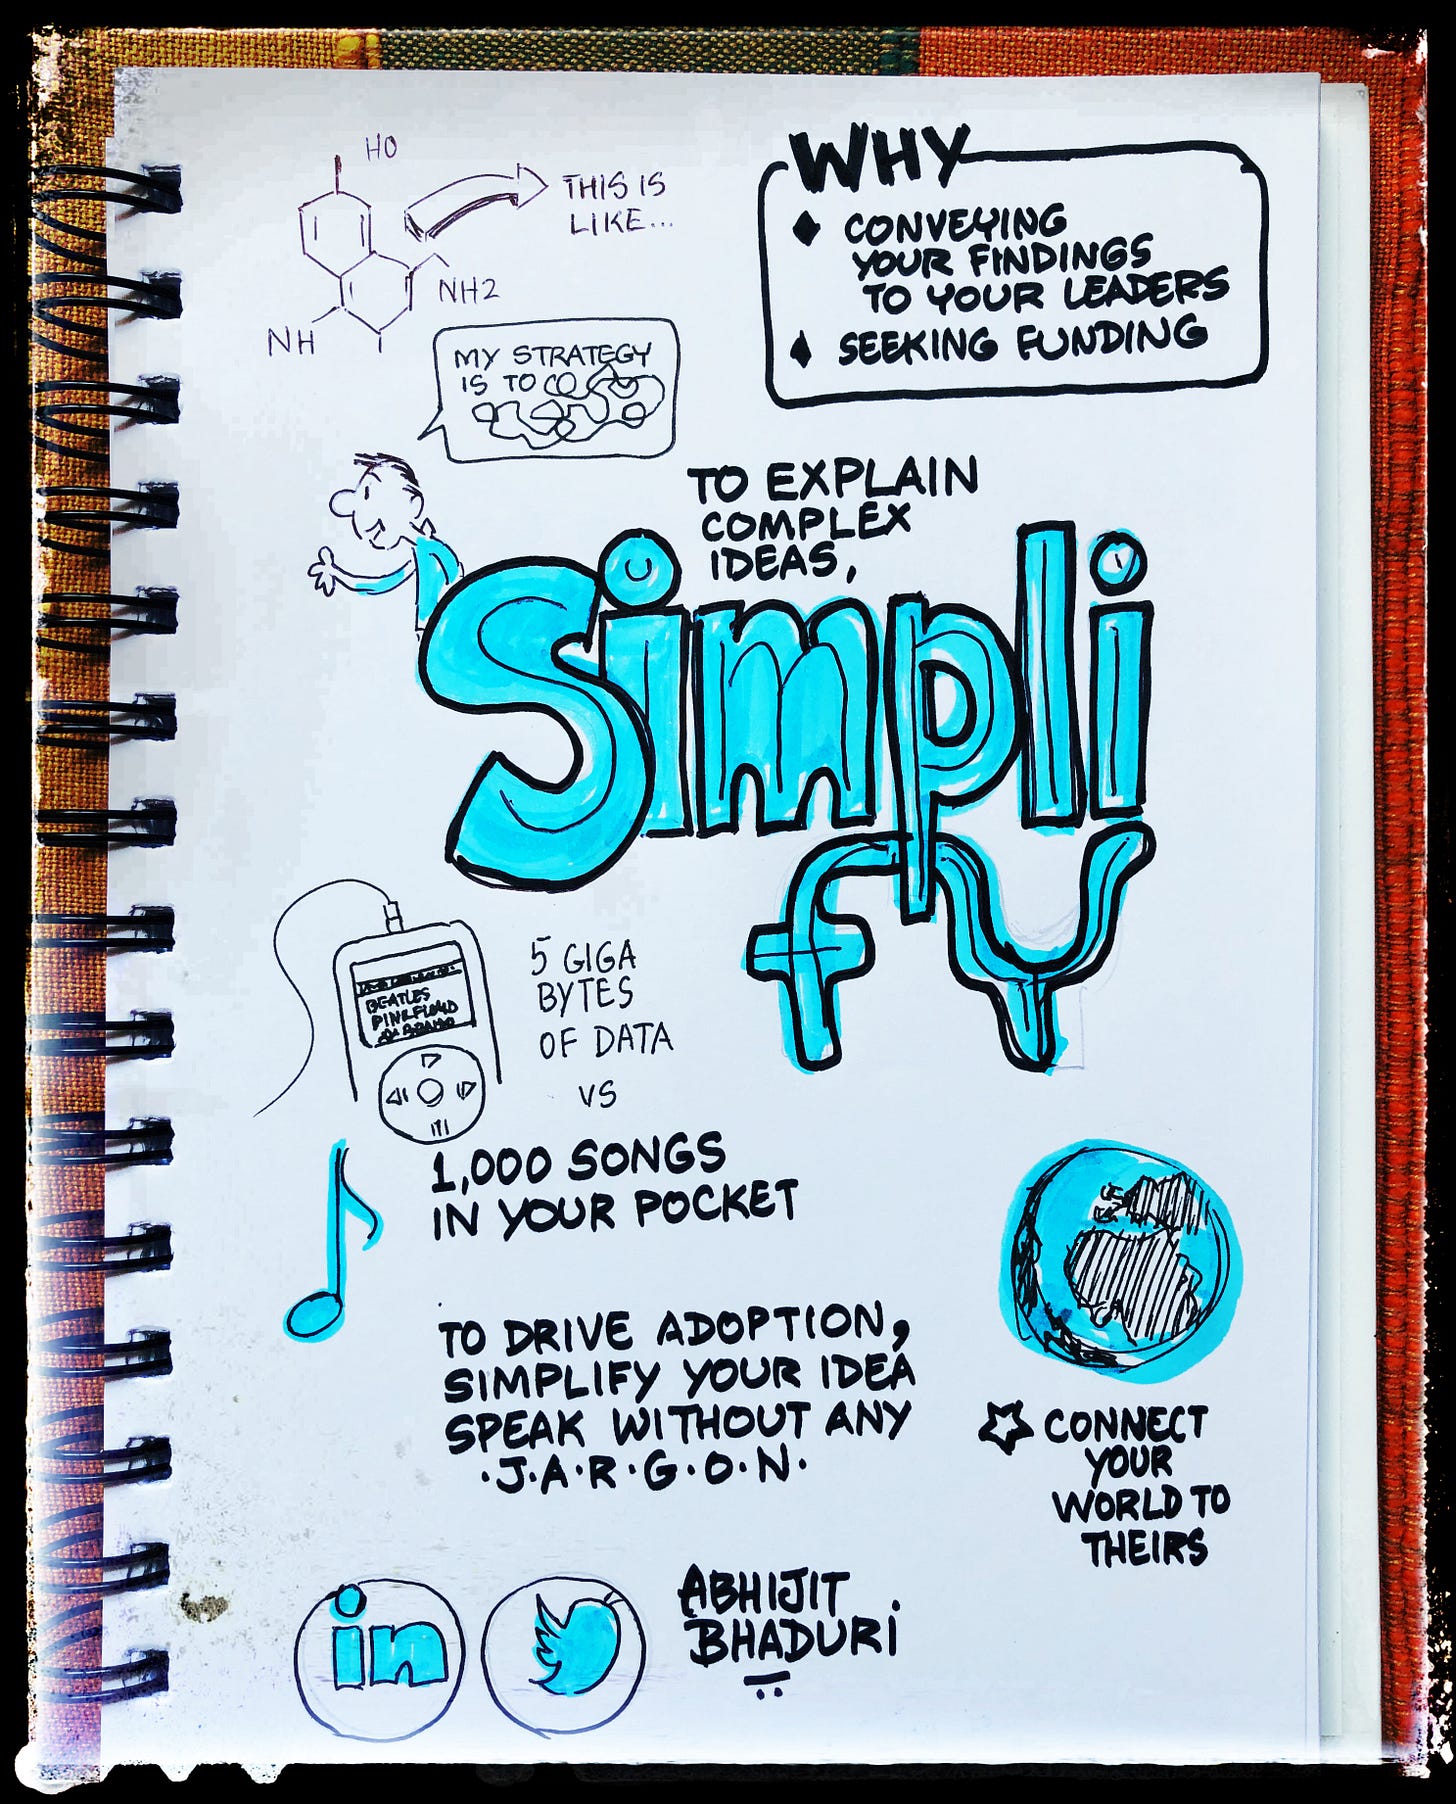 HO
THIS IS
LIKE...
NH2
NH
MY STRATEGY
IS TO CO
WHY
CONVEYING
YOUR FINDINGS
TO YOUR LEADERS
SEEKING FUNDING
TO EXPLAIN
COMPLEX
IDEAS,
Simpli
fy
BEATLES
PINK FLOYD
5 GIGA
BYTES
OF DATA
VS
1,000 SONGS
IN YOUR POCKET
TO DRIVE ADOPTION,
SIMPLIFY YOUR IDEA
SPEAK WITHOUT ANY
·J·A·R·G·O·N·
CONNECT
YOUR
WORLD TO
THEIRS
in
ABHIJIT
BHADURI